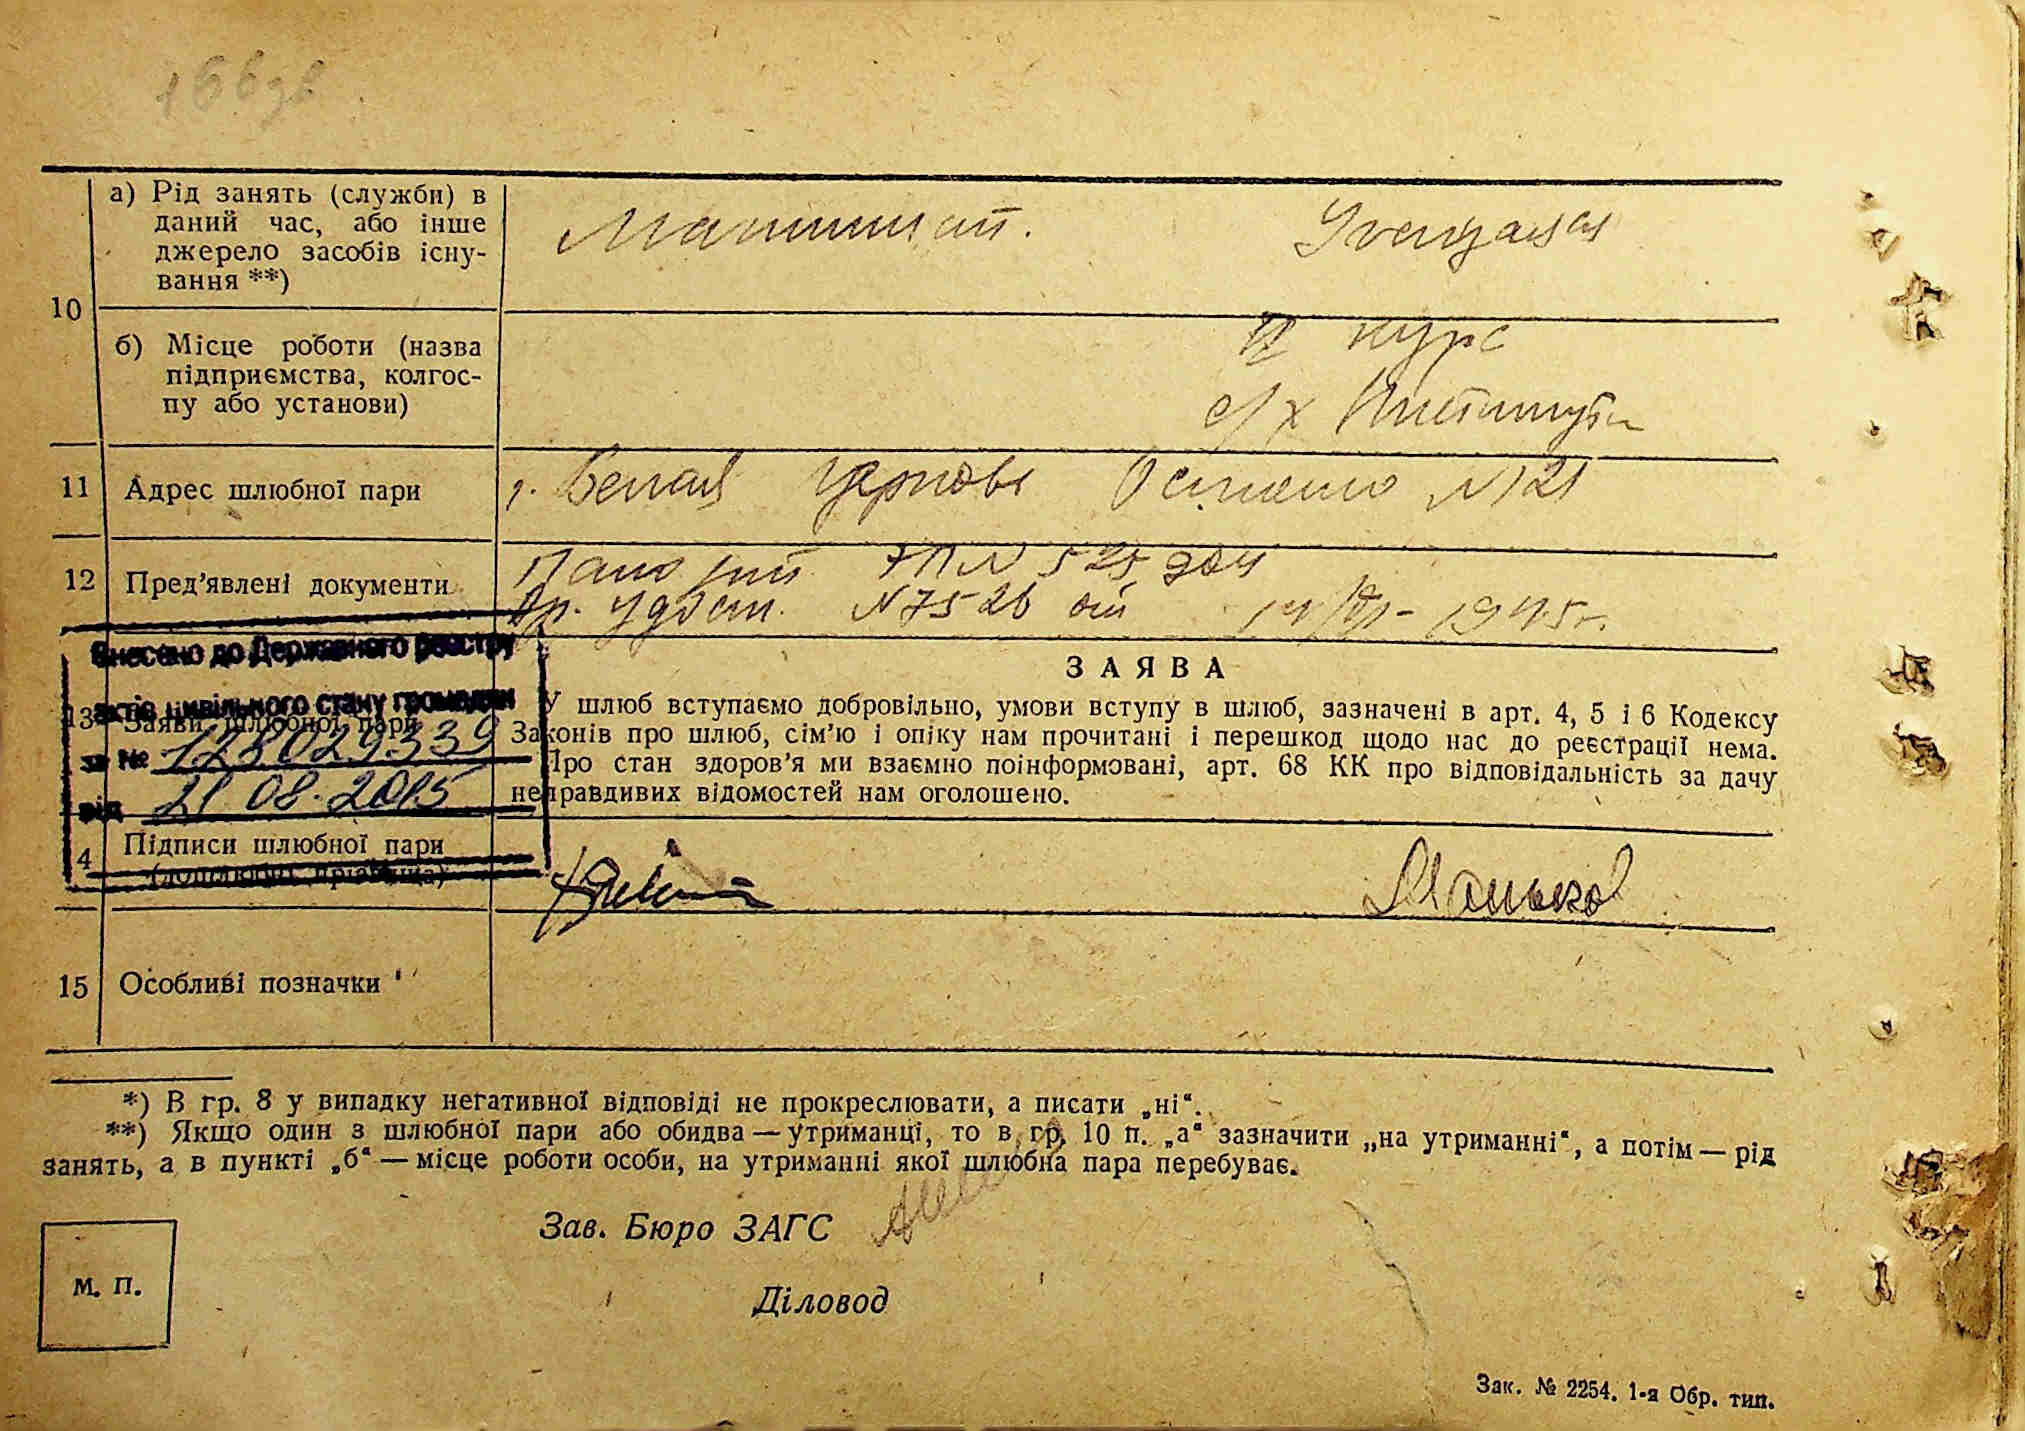 166 зв
а) Рід занять (служби) в
даний час, або інше
джерело засобів існу-
вання **)
Машинист.
Учащаяся
10
б) Місце роботи (назва
підприємства, колгос-
пу або установи)
курс
с/х Института
11 Адрес шлюбної пари
г. Белая Церковь N 121
12 Пред’явлені документи
N 525
Вр. удост. N 7526 от 1945 г.
Внесено до Державного реєстру
актів цивільного стану громадян
за № 128029339
від 21 08. 2015
13 Заяви шлюбної пари
ЗАЯВА
У шлюб вступаємо добровільно, умови вступу в шлюб, зазначені в арт. 4, 5 і 6 Кодексу
Законів про шлюб, сім’ю і опіку нам прочитані і перешкод щодо нас до реєстрації нема.
Про стан здоров’я ми взаємно поінформовані, арт. 68 КК про відповідальність за дачу
неправдивих відомостей нам оголошено.
4 Підписи шлюбної пари
(дошлюбні прізвища)
15 Особливі позначки
*) В гр. 8 у випадку негативної відповіді не прокреслювати, а писати „ні“.
**) Якщо один з шлюбної пари або обидва — утриманці, то в гр. 10 п. „а“ зазначити „на утриманні“, а потім — рід
занять, а в пункті „б“ — місце роботи особи, на утриманні якої шлюбна пара перебуває.
Зав. Бюро ЗАГС
М. П.
Діловод
Зак. № 2254. 1-а Обр. тип.